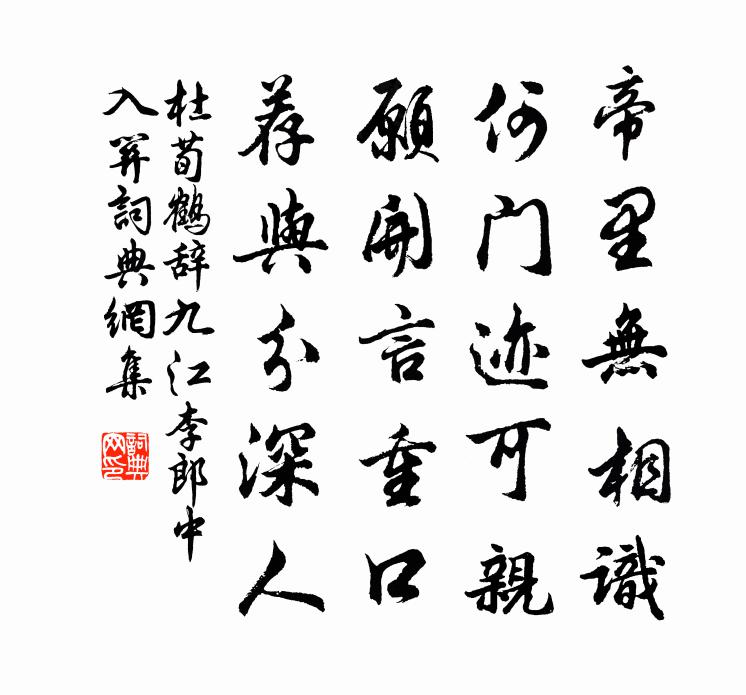 帝里無相識
何門迹可親
願開言重口
荐與分深人
杜荀鶴辞九江李郎中
入關詞典網集
詞典网印